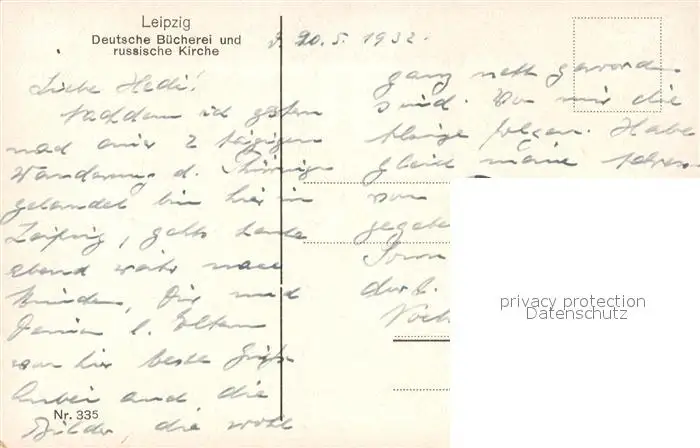 Leipzig
Deutsche Bücherei und
russische Kirche
20.5.1932.
Liebe Hedi!
Nachdem ich gestern
nach einer 2 tägigen
Wanderung d. Thüringe
gelandet bin hier in
Leipzig, gehts heute
abend weiter nach
Dir und
Deinen l. Eltern
von hier beste Grüße
anbei auch die
Bilder, die wohl
Nr. 335
ganz nett geworden
sind. Von mir die
Habe
gleich meine
von
gegeben
der l.
privacy protection
Datenschutz